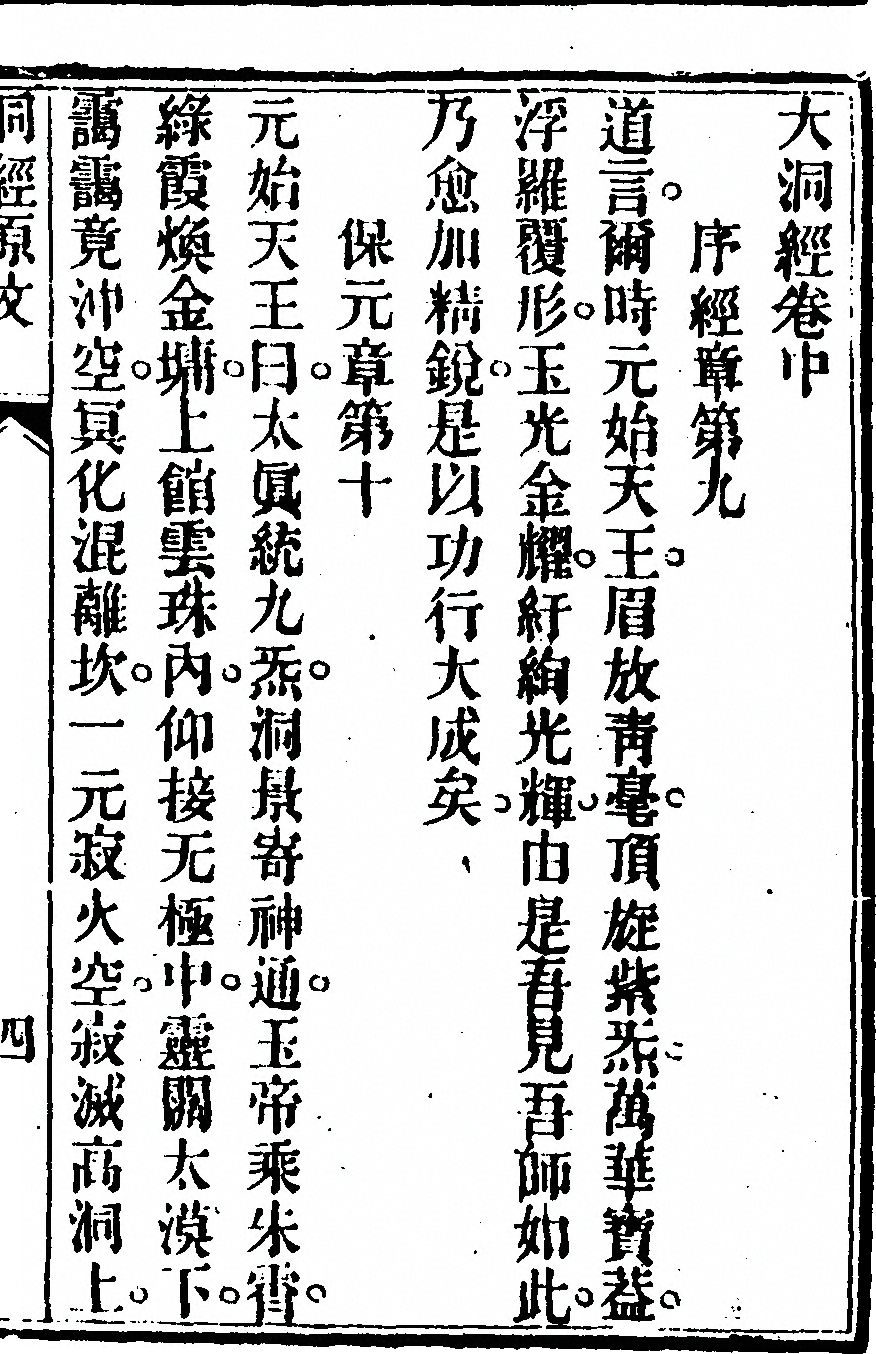 大洞經卷中
序經章第九
道言。爾時元始天王。眉放青毫。頂旋紫炁。萬華寶葢。
浮羅覆形。玉光金耀。紆絢光輝。由是吾見吾師如此。
乃愈加精銳。是以功行大成矣。
保元章第十
元始天王曰。太眞統九炁。洞景寄神通。玉帝乘朱霄。
綠霞煥金墉。上館雲珠內。仰接无極中。靈關太漠下。
靄靄竟沖空。冥化混離坎。一元寂火空。寂滅高洞上。
洞經原文
四